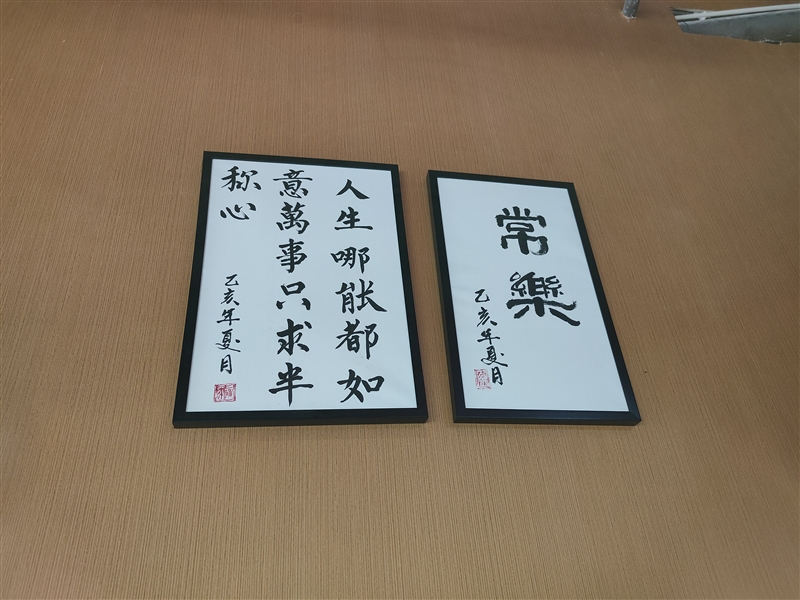 人生哪能都如
意萬事只求半
称心
乙亥年夏月
常樂
乙亥年夏月